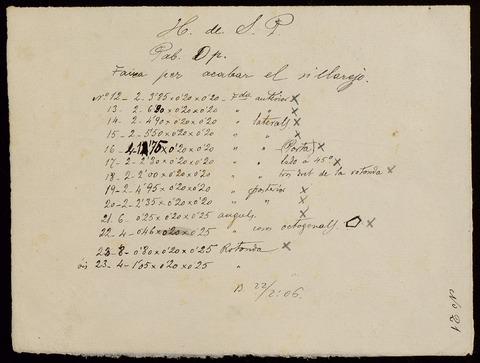 H. de S. P
Pab. Op.
Faixa per acabar el sillarejo.
Nº 12 - 2 - 3'85 x 0'20 x 0'20 - Fda anterior X
13 - 2 - 6'80 x 0'20 x 0'20 " " X
14 - 2 - 4'90 x 0'20 x 0'20 " laterals X
15 - 2 - 5'50 x 0'20 x 0'20 " " X
16 - 1'75 x 0'20 x 0'20 " " (Porta) X
17 - 2 - 2'20 x 0'20 x 0'20 " " lado a 45º X
18 - 2 - 2'00 x 0'20 x 0'20 " " de la rotonda X
19 - 2 - 4'95 x 0'20 x 0'20 " posterior X
20 - 2 - 2'35 x 0'20 x 0'20 " " X
21. 6. 0'25 x 0'20 x 0'25 anguls. X
22 - 4 - 0'46 x 0'20 x 0'25 " com octogonals X
23 - 8 - 0'80 x 0'20 x 0'25 Rotonda X
23 - 4 - 1'05 x 0'20 x 0'25 "
B 22/2:06.
Nº 21